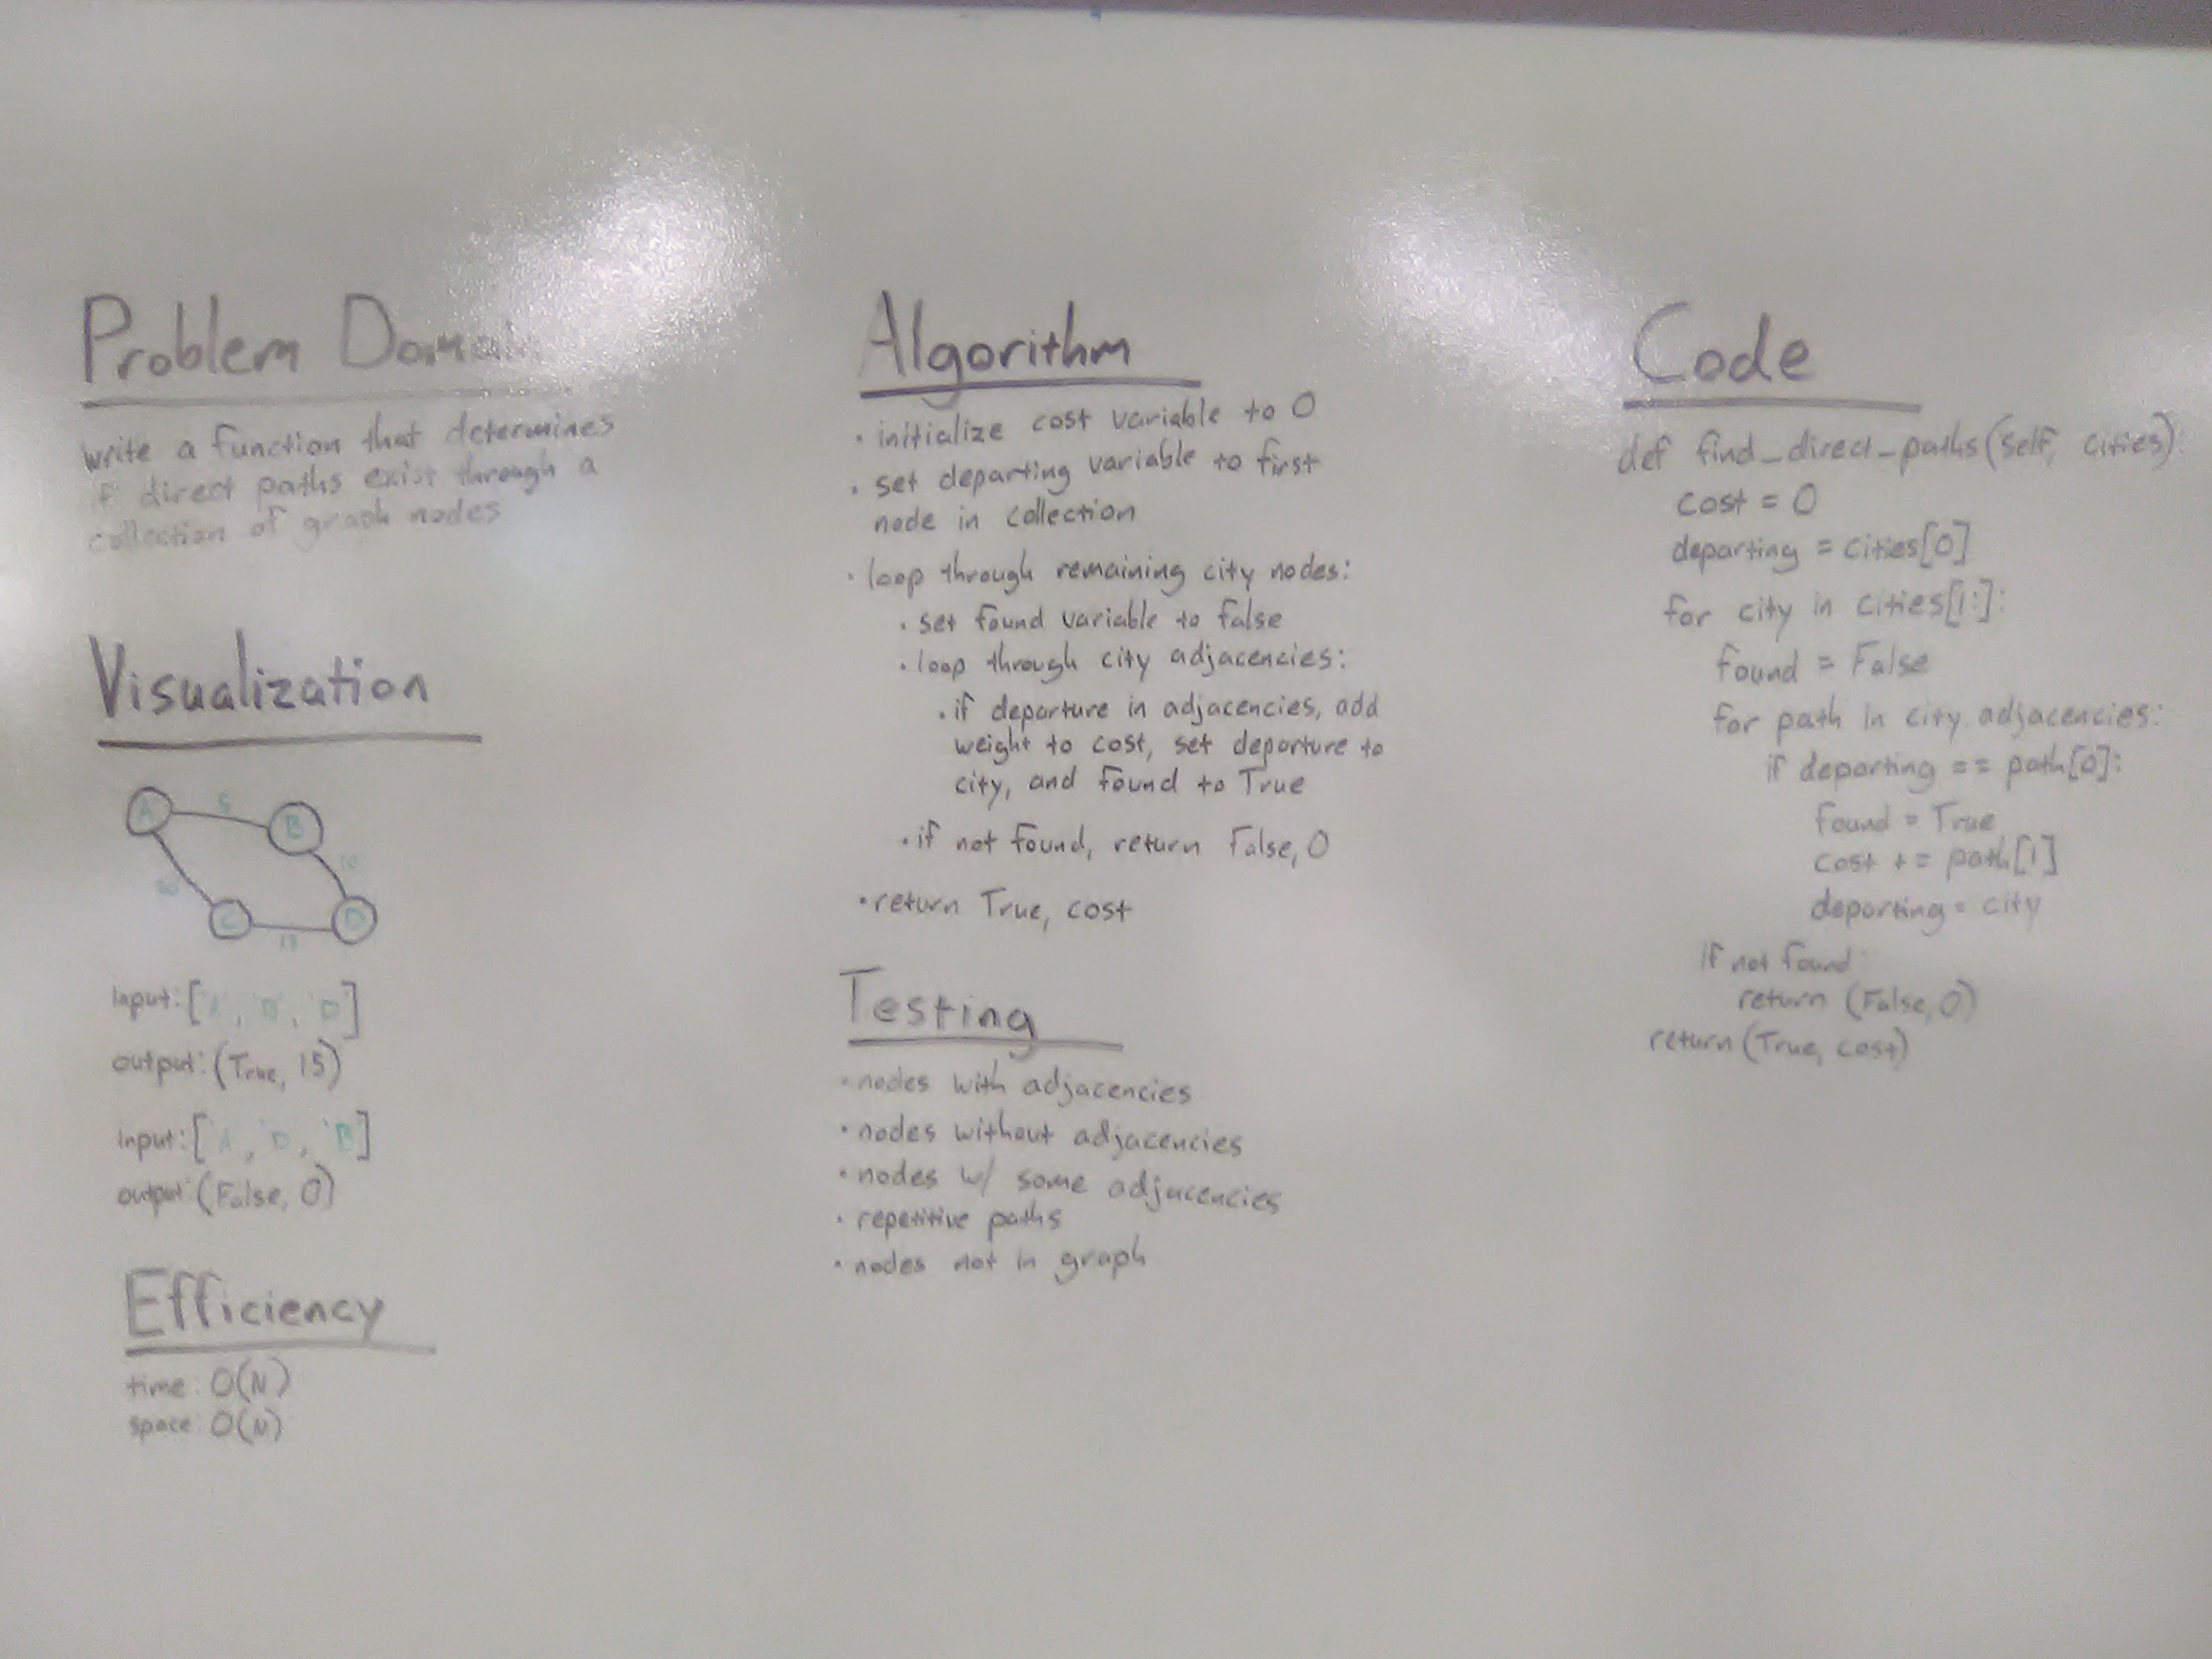 Problem Domain
write a function that determines
if direct paths exist through a
collection of graph nodes
Visualization
A 5 B
10
20
C D
15
input: ['A', 'B', 'D']
output: (True, 15)
input: ['A', 'D', 'B']
output: (False, 0)
Efficiency
time: O(N)
space: O(N)
Algorithm
· initialize cost variable to 0
· set departing variable to first
node in collection
· loop through remaining city nodes:
· set found variable to false
· loop through city adjacencies:
· if departure in adjacencies, add
weight to cost, set departure to
city, and found to True
· if not found, return False, 0
· return True, cost
Testing
· nodes with adjacencies
· nodes without adjacencies
· nodes w/ some adjacencies
· repetitive paths
· nodes not in graph
Code
def find_direct_paths(self, cities):
cost = 0
departing = cities[0]
for city in cities[1:]:
found = False
for path in city.adjacencies:
if departing == path[0]:
found = True
cost += path[1]
departing = city
if not found:
return (False, 0)
return (True, cost)